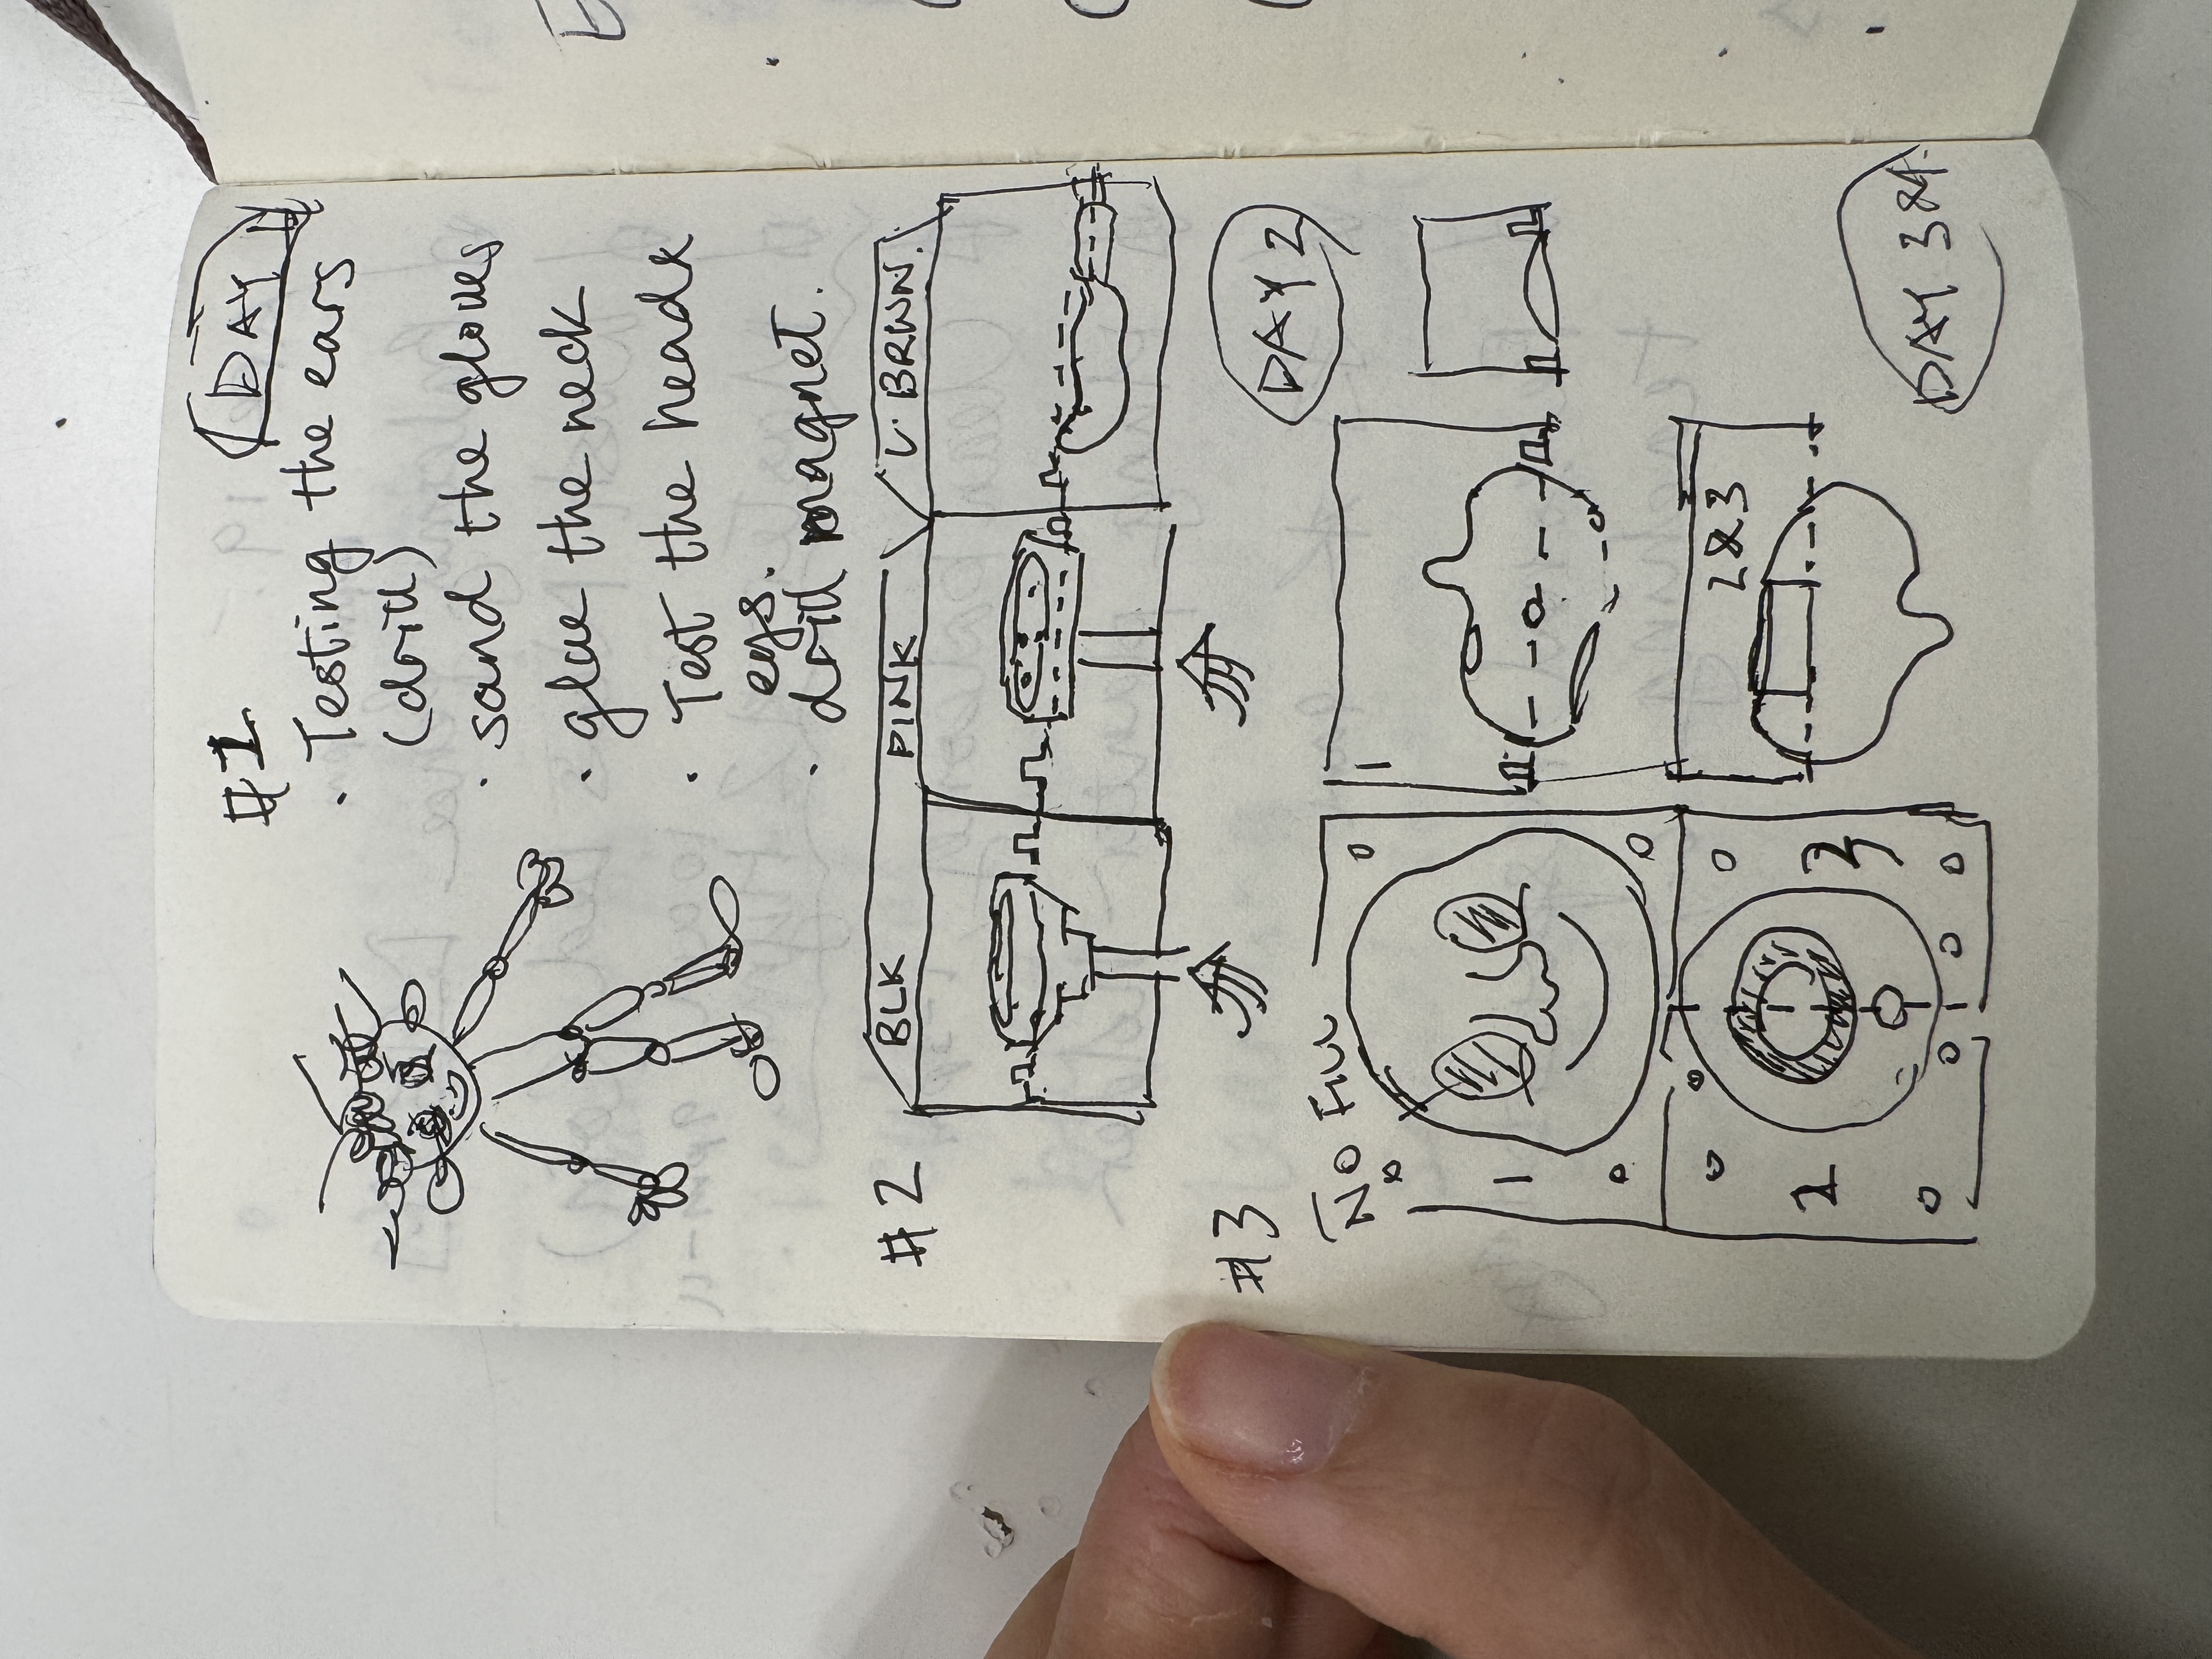 #1
DAY 1
· Testing the ears
(drill)
· sand the gloves
· glue the neck
· Test the heads
· drill magnet.
#2
BLK
PINK
L. BRWN.
DAY 2
#3
1
1
2
3
2&3
DAY 3&4.